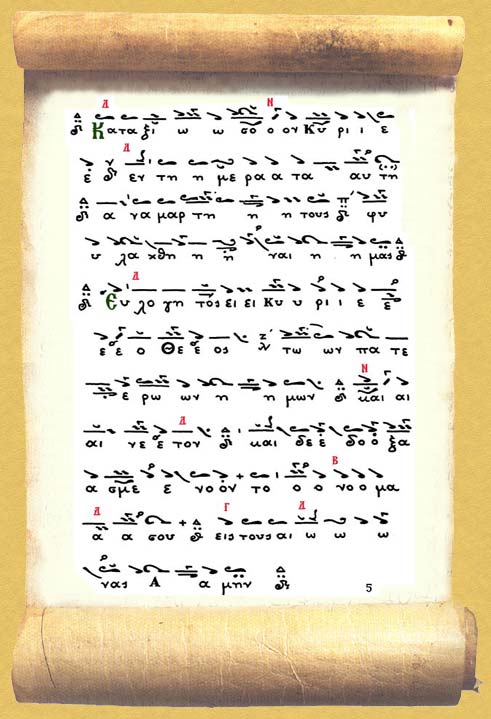 Δ Ν
Κατα ξι ω ω σο ο ον Κυ ρι ι ε
Δ
ε εν τη η με ρα α τα αυ τη
α να μαρ τη η η τους φυ
υ λα χθη η η ναι η η μας
Δ
Ευ λο γη τος ει ει Κυ υ ρι ε ε
ε ε ο Θε ε ος τω ων πα τε
Ν
ε ρω ων η η μων και αι
Δ
αι νε ε τον και δε ε δο ο ξα
Β
α σμε ε νο ον το ο ο νο ο μα
Δ Γ Δ
α α σου εις τους αι ω ω ω
νας Α α μην
5